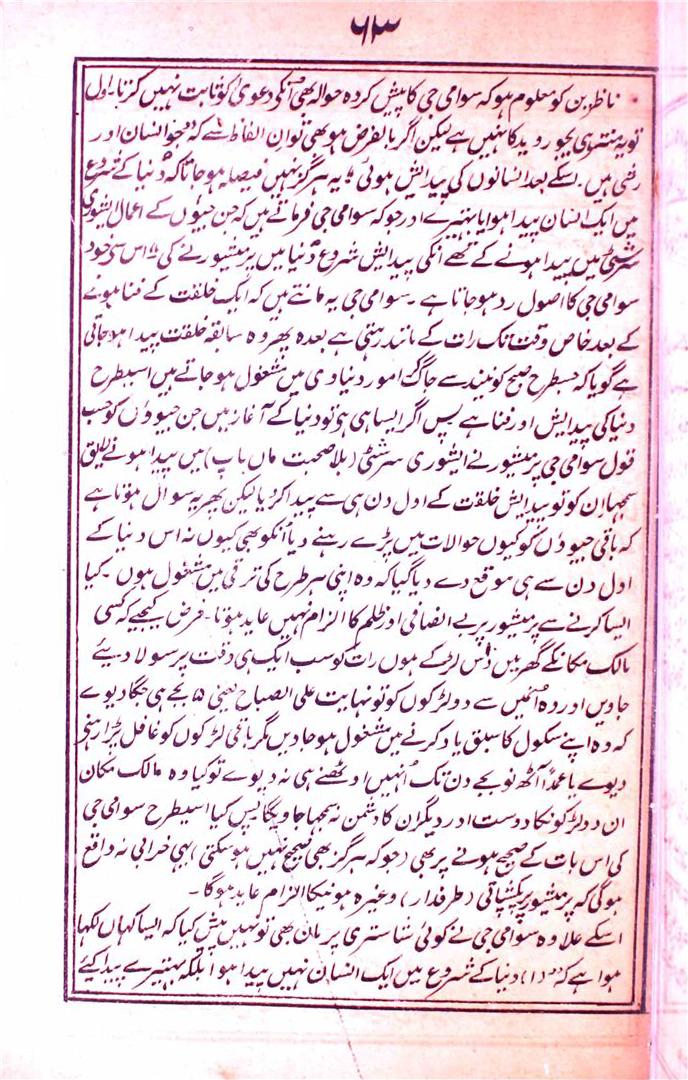 ۶۳
ناظرین کو معلوم ہو کہ سوامی جی کا پیش کردہ حوالہ بھی انکی دعویٰ کو ثابت نہیں کرتا۔ اول
تو یہ منتر ہی یجور وید کا نہیں ہے لیکن اگر بالفرض ہو بھی تو ان الفاظ سے کہ "جو انسان اور
رشی ہیں۔ اسکے بعد انسانوں کی پیدایش ہوئی" یہ ہرگز نہیں فیصلہ ہو جاتا کہ دنیا کے شروع
میں ایک انسان پیدا ہوا یا بہتیرے اور جو کہ سوامی جی فرماتے ہیں کہ جن جیوؤں کے اعمال ایشوری
سرشٹی میں پیدا ہونے کے تھے انکی پیدایش شروع دنیا میں پرمیشور نے کی" اس سے خود
سوامی جی کا اصول رد ہو جاتا ہے۔ سوامی جی یہ مانتے ہیں کہ ایک خلقت کے فنا ہونے
کے بعد خاص وقت تک رات کے مانند رہتی ہے بعدہ پھر وہ سابقہ خلقت پیدا ہو جاتی
ہے گویا کہ جسطرح صبح کو نیند سے جاگ کر امور دنیاوی میں مشغول ہو جاتے ہیں اسیطرح
دنیا کی پیدایش اور فنا ہے پس اگر ایسا ہی ہی تو دنیا کے آغاز میں جن جیوؤں کو حسب
قول سوامی جی پرمیشور نے ایشوری سرشٹی (بلا صحبت ماں باپ) میں پیدا ہونے لایق
سمجہا ان کو تو پیدایش خلقت کے اول دن ہی سے پیدا کر دیا لیکن پھر یہ سوال ہوتا ہے
کہ باقی جیوؤں کو کیوں حوالات میں پڑے رہنے دیا اُنکو بھی کیوں نہ اس دنیا کے
اول دن سے ہی موقع دے دیا گیا کہ وہ اپنی ہر طرح کی ترقی میں مشغول ہوں۔ کیا
ایسا کرنے سے پرمیشور پر بے انصافی اور ظلم کا الزام نہیں عاید ہوتا۔ فرض کیجیے کہ کسی
مالک مکان کے گھر میں دس لڑکے ہوں رات کو سب ایک ہی وقت پر سولا دیئے
جاویں اور وہ اُنمیں سے دو لڑکوں کو تو نہایت علی الصباح یعنی ۵ بجے ہی جگا دیوے
کہ وہ اپنے سکول کا سبق یاد کرنے میں مشغول ہو جاویں مگر باقی لڑکوں کو غافل پڑا رہنے
دیوے یا عمداً آٹھ نو بجے دن تک اُنہیں اوٹھنے ہی نہ دیوے تو کیا وہ مالک مکان
ان دو لڑکونکا دوست اور دیگران کا دشمن نہ سمجہا جاویگا پس کیا اسیطرح سوامی جی
کی اس بات کے صحیح ہونے پر بھی (جو کہ ہرگز بھی صحیح نہیں ہو سکتی) یہی خرابی نہ واقع
ہوگی کہ پرمیشور پر پکشپاتی (طرفدار) وغیرہ ہونیکا الزام عاید ہوگا۔
اسکے علاوہ سوامی جی نے کوئی شاستری پرمان بھی تو نہیں پیش کیا کہ ایسا کہاں لکہا
ہوا ہے کہ "(۱) دنیا کے شروع میں ایک انسان نہیں پیدا ہوا بلکہ بہتیرے پیدا کیے